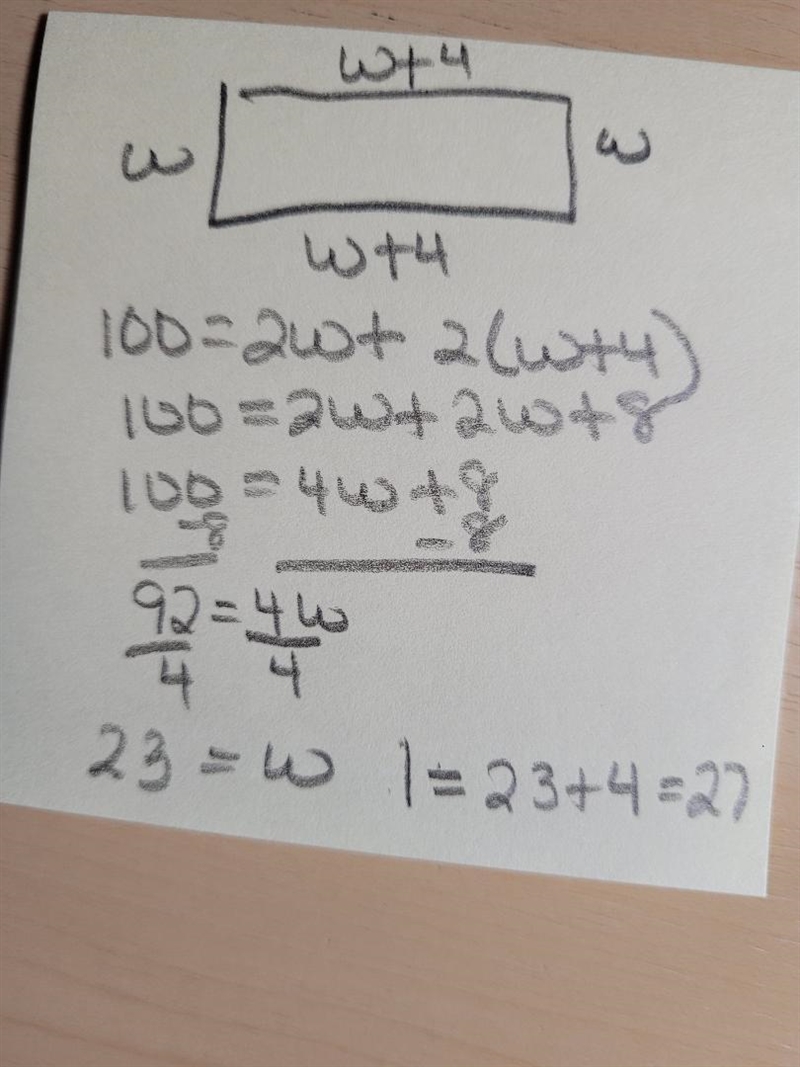 w+4
w w
w+4
100=2w+ 2(w+4)
100=2w+2w+8
100=4w+8
-8 -8
92=4w
4 4
23=w l=23+4=27